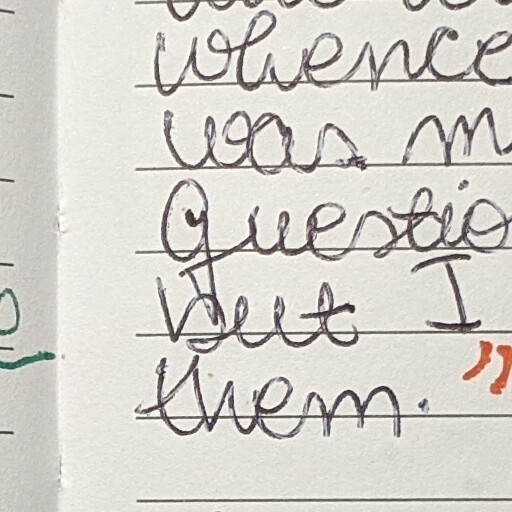 whence
was m
questio
but I
them."